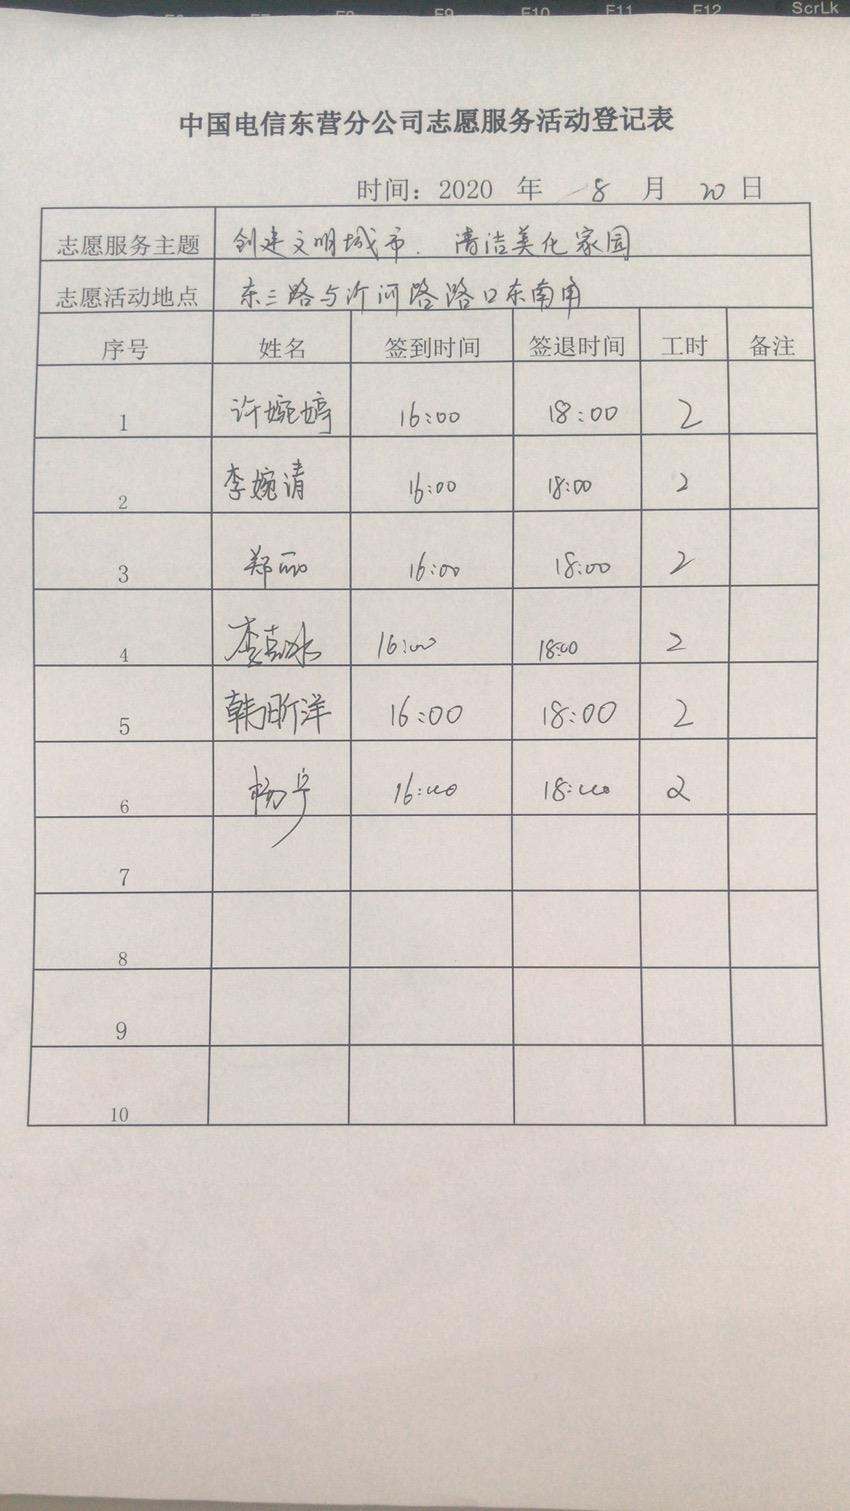 F8 F9 F10 F11 F12 ScrLk
中国电信东营分公司志愿服务活动登记表
时间：2020 年 8 月 20 日
志愿服务主题 创建文明城市. 清洁美化家园
志愿活动地点 东三路与沂河路路口东南角
序号 姓名 签到时间 签退时间 工时 备注
1 许婉婷 16:00 18:00 2
2 李婉清 16:00 18:00 2
3 郑丽 16:00 18:00 2
4 16:00 18:00 2
5 韩昕洋 16:00 18:00 2
6 杨宁 16:00 18:00 2
7
8
9
10